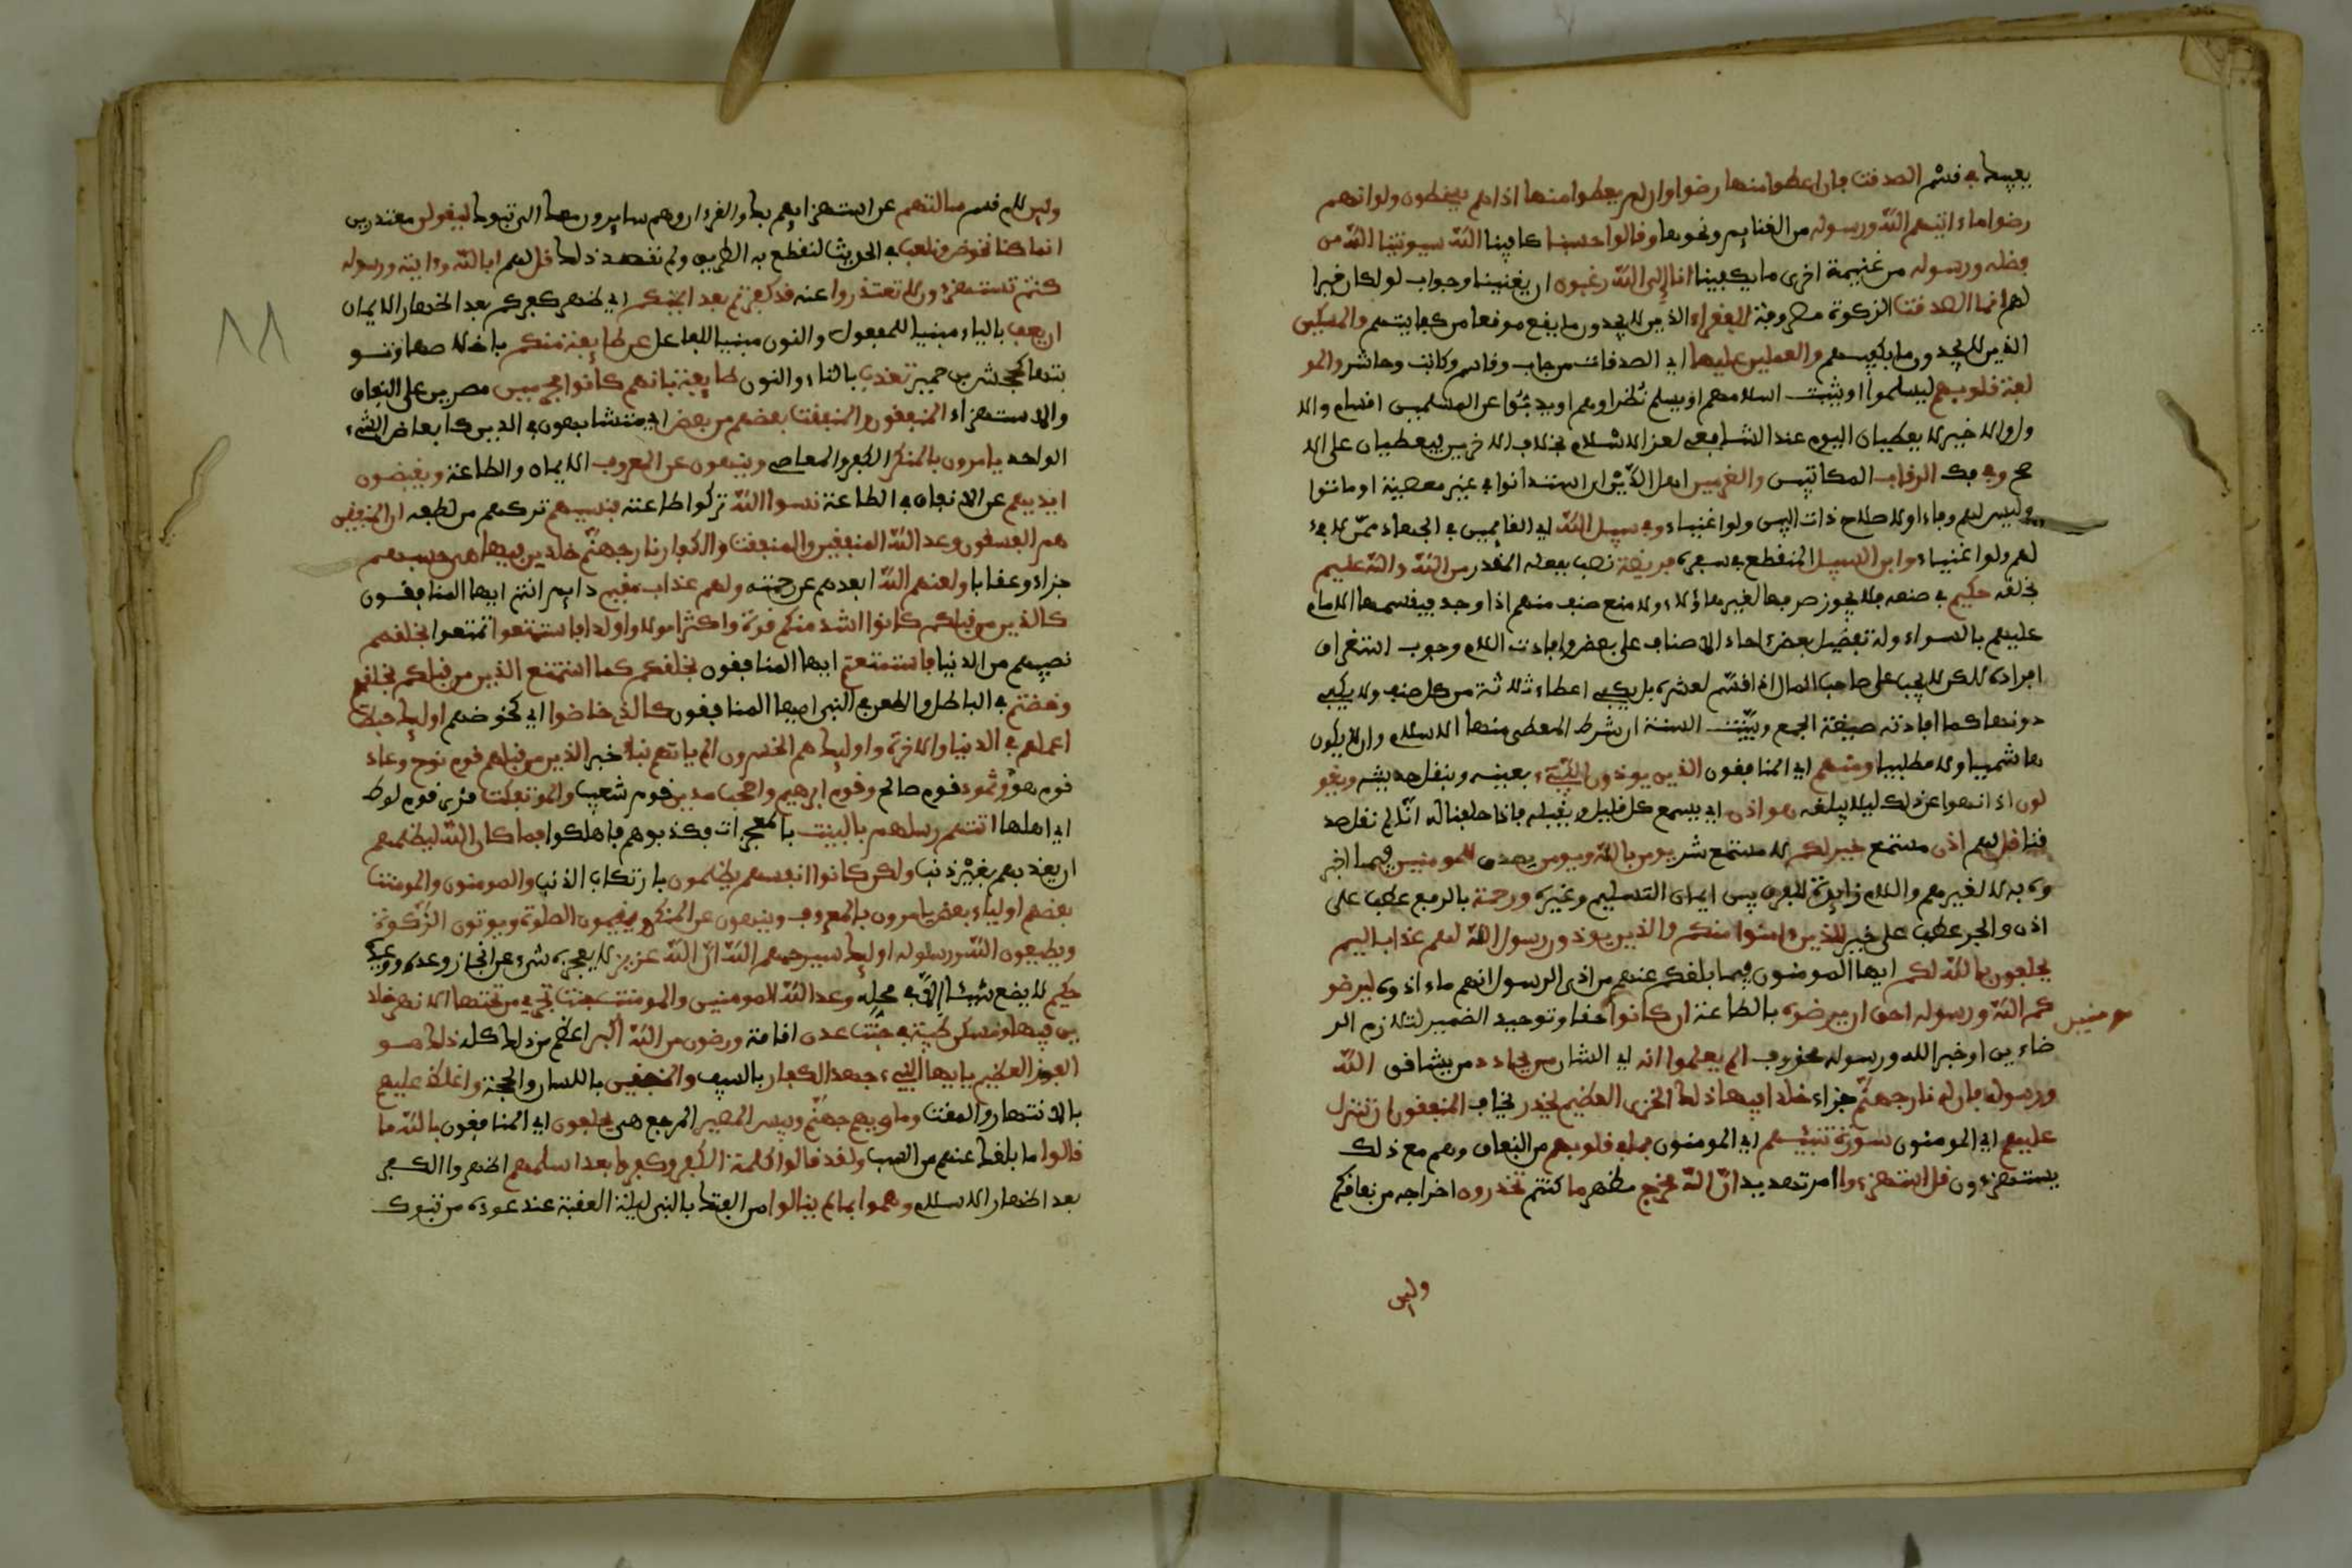 يعيبك في قسم الصدقت فان اعطوا منها رضوا وان لم يعطوا منها اذا هم يسخطون ولو انهم
رضوا ما ءاتيهم الله ورسوله من الغنايم ونحوها وقالوا حسبنا كافينا الله سيوتينا الله من
فضله ورسوله من غنيمة اخرى ما يكفينا انا الى الله رغبون ان يغنينا وجواب لو لكان خيرا
لهم انما الصدقت الزكوة مصروفة للفقراء الذين لا يجدون ما يقع موقعا من كفايتهم والمسكين
الذين لا يجدون ما يكفيهم والعملين عليها اي الصدقات من جاب وقاسم وكاتب وحاشر والمو
لفة قلوبهم ليسلموا او يثبت اسلامهم او يسلم نظراوهم او يذبوا عن المسلمين اقسام والا
ول والاخير لا يعطيان اليوم عند الشافعي لعز الاسلام بخلاف الاخرين فيعطيان على الا
صح وفي فك الرقاب المكاتبين والغرمين اهل الدين ان استدانوا في غير معصية او تابوا
وليس لهم وفاء او لاصلاح ذات البين ولو اغنياء وفي سبيل الله اي القايمين في الجهاد ممن لا فيء
لهم ولو اغنياء وابن السبيل المنقطع في سفره فريضة نصب بفعله المقدر من الله والله عليم
بخلقه حكيم في صنعه فلا يجوز صرفها لغير هاؤلاء ولا منع صنف منهم اذا وجد فيقسمها الامام
عليهم بالسواء وله تفضيل بعض احاد الاصناف على بعض وافادت اللام وجوب استغراق
افراده لكن لا يجب على صاحب المال اذا قسم لعسره بل يكفي اعطاء ثلاثة من كل صنف ولا يكفي
دونها كما افادته صيغة الجمع وبينت السنة ان شرط المعطى منها الاسلام وان لا يكون
هاشميا ولا مطلبيا ومنهم اي المنافقون الذين يوذون النبيء بعيبه وبنقل حديثه ويقو
لون اذا نهوا عن ذلك ليلا يبلغه هو اذن اي يسمع كل قيل ويقبله فاذا حلفنا له انا لم نقل صد
قنا قل لهم اذن مستمع خير لكم لا مستمع شر يومن بالله ويومن يصدق للمومنين فيما اخبر
وه به لا لغيرهم واللام زايدة للفرق بين ايمان التسليم وغيره ورحمة بالرفع عطف على
اذن والجر عطف على خير للذين ءامنوا منكم والذين يوذون رسول الله لهم عذاب اليم
يحلفون بالله لكم ايها المومنون فيما بلغكم عنهم من اذى الرسول انهم ما اذوه ليرضو
كم الله ورسوله احق ان يرضوه بالطاعة ان كانوا حقا وتوحيد الضمير لتلازم الر
مومنين
ضاءين او خبر الله ورسوله محذوف الم يعلموا انه اي الشان من يحادد من يشاقق الله
ورسوله فان له نار جهنم جزاء خلدا فيها ذلك الخزي العظيم يحذر يخاف المنفقون ان تنزل
عليهم اي المومنون سورة تنبئهم اي المومنون بما في قلوبهم من النفاق وهم مع ذلك
يستهزءون قل استهزءوا امر تهديد ان الله مخرج مظهر ما كنتم تحذرون اخراجه من نفاقكم
ولين
ولين لام قسم سالتهم عن استهزايهم بك والقرءان وهم سايرون معك الى تبوك ليقولن معتذرين
انما كنا نخوض ونلعب في الحديث لنقطع به الطريق ولم نقصد ذلك قل لهم ابالله وءايته ورسوله
كنتم تستهزءون لا تعتذروا عنه قد كفرتم بعد ايمنكم اي ظهر كفركم بعد اظهار الايمان
ان يعف بالياء مبنيا للمفعول والنون مبنيا للفاعل عن طايفة منكم باخلاصها وتو
بتها كجحش بن حمير تعذب بالتاء والنون طايفة بانهم كانوا مجرمين مصرين على النفاق
والاستهزاء المنفقون والمنفقت بعضهم من بعض اي متشابهون في الدين كابعاض الشيء
الواحد يامرون بالمنكر الكفر والمعاصي وينهون عن المعروف الايمان والطاعة ويقبضون
ايديهم عن الانفاق في الطاعة نسوا الله تركوا طاعته فنسيهم تركهم من لطفه ان المنفقين
هم الفسقون وعد الله المنفقين والمنفقت والكفار نار جهنم خلدين فيها هي حسبهم
جزاء وعقابا ولعنهم الله ابعدهم عن رحمته ولهم عذاب مقيم دايم انتم ايها المنافقون
كالذين من قبلكم كانوا اشد منكم قوة واكثر امولا واولدا فاستمتعوا تمتعوا بخلقهم
نصيبهم من الدنيا فاستمتعتم ايها المنافقون بخلقكم كما استمتع الذين من قبلكم بخلقهم
وخضتم في الباطل والطعن في النبي ايها المنافقون كالذي خاضوا اي كخوضهم اوليك حبطت
اعملهم في الدنيا والاخرة واوليك هم الخسرون الم ياتهم نبا خبر الذين من قبلهم قوم نوح وعاد
قوم هود وثمود قوم صالح وقوم ابرهيم واصحب مدين قوم شعيب والموتفكت قرى قوم لوط
اي اهلها اتتهم رسلهم بالبينت بالمعجزات فكذبوهم فاهلكوا فما كان الله ليظلمهم
ان يعذبهم بغير ذنب ولكن كانوا انفسهم يظلمون بارتكاب الذنب والمومنون والمومنت
بعضهم اولياء بعض يامرون بالمعروف وينهون عن المنكر ويقيمون الصلوة ويوتون الزكوة
ويطيعون الله ورسوله اوليك سيرحمهم الله ان الله عزيز لا يعجزه شيء عن انجاز وعده ووعيده
حكيم لا يضع شيئا الا في محله وعد الله المومنين والمومنت جنت تجري من تحتها الانهر خلد
ين فيها ومسكن طيبة في جنت عدن اقامة ورضون من الله اكبر اعظم من ذلك كله ذلك هو
الفوز العظيم يايها النبيء جهد الكفار بالسيف والمنفقين باللسان والحجة واغلظ عليهم
بالانتهار والمقت وماويهم جهنم وبيس المصير المرجع هي يحلفون اي المنافقون بالله ما
قالوا ما بلغك عنهم من السب ولقد قالوا كلمة الكفر وكفروا بعد اسلمهم اظهروا الكفر
بعد اظهار الاسلام وهموا بما لم ينالوا من الفتك بالنبي ليلة العقبة عند عوده من تبوك